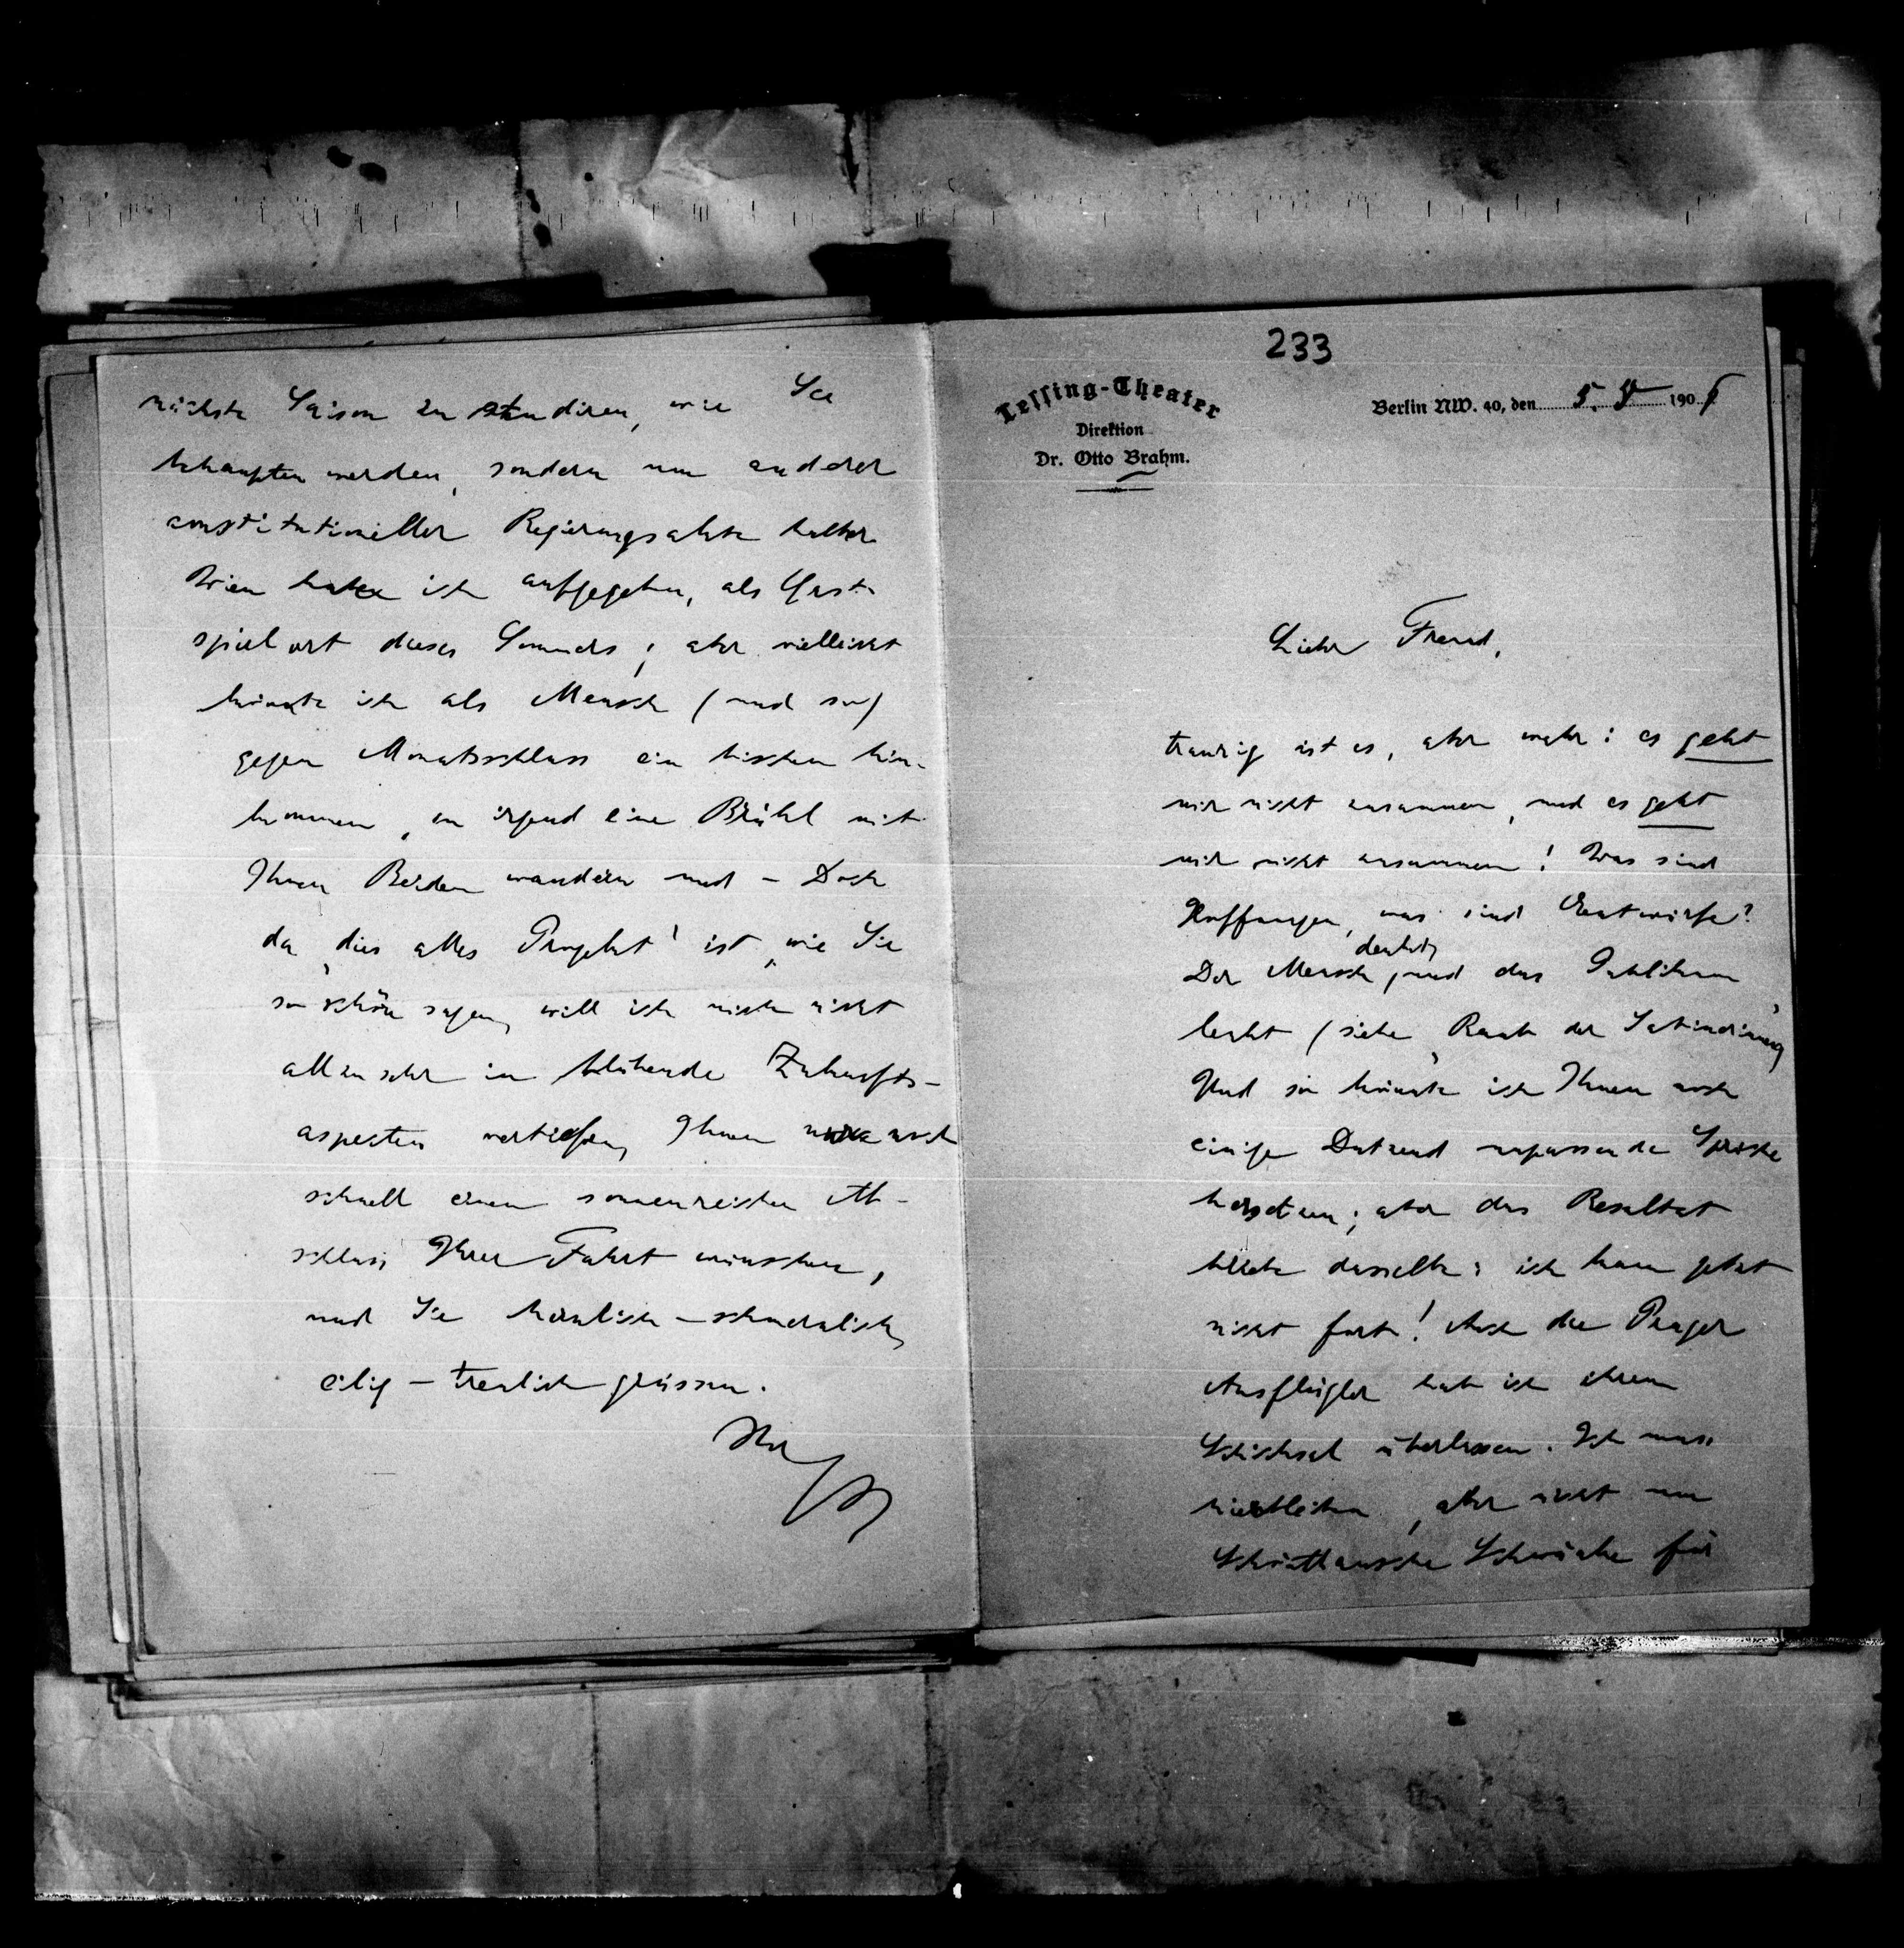 233
Lessing-Theater
Direktion
Dr. Otto Brahm.
Berlin NW. 40, den 5. V 190
Lieber Freund,
traurig ist es, aber wahr: es geht
mir nicht zusammen, und es geht
mir nicht zusammen! Was sind
Hoffnungen, was sind Entwürfe?
Der Mensch denkt, und das Publikum
lenkt (siehe „Raub der Sabinerinnen“)
Und so könnte ich Ihnen noch
einige Dutzend unpassende Sprüche
hersetzen; aber das Resultat
bliebe dasselbe: ich kann jetzt
nicht fort! Auch die Prager
Ausflügler hab ich ihrem
Schicksal überlassen. Ich muss
hierbleiben, aber nicht um
Schönthansche Schwänke für
nächste Saison zu studiren, wie Sie
behaupten werden, sondern um anderer
constitutioneller Regierungsakte halber.
Wien habe ich aufgegeben, als Gast-
spielort dieses Sommers; aber vielleicht
könnte ich als Mensch (und so)
gegen Monatsschluss ein bisschen hin-
kommen, in irgend eine Brühl mit
Ihnen Beiden wandern und – Doch
da „dies alles Projekt“ ist, wie Sie
so schön sagen, will ich mich nicht
allzu sehr in blühende Zukunfts-
aspecten vertiefen, Ihnen noch
schnell einen sonnenreichen Ab-
schluss Ihrer Fahrt wünschen,
und Sie herzlich – schmerzlich,
eilig – treulich grüssen.
Ihr